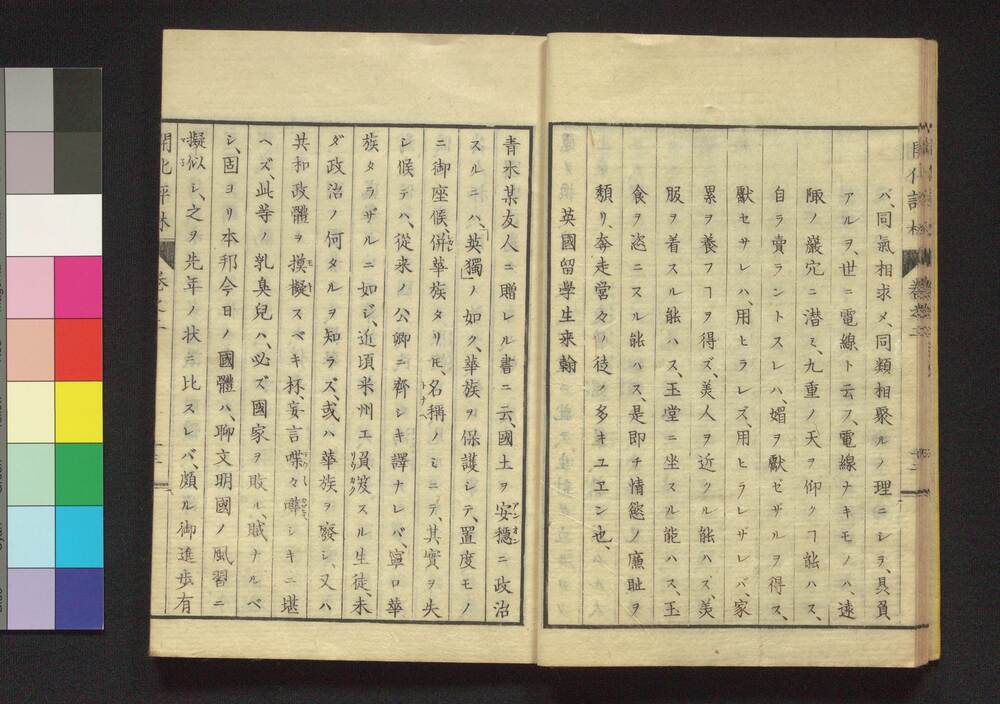 バ、同氣相求メ、同類相聚ルノ理ニシヲ、具眞
アルヲ、世ニ電線ト云フ、電線ナキモノハ、遠
陬ノ巖穴ニ潜ミ、九重ノ天ヲ仰クヿ能ハス、
自ラ賣ラントスレハ、媚ヲ獻ゼザルヲ得ス、
獻セサレハ、用ヒラレズ、用ヒラレザレバ、家
累ヲ養フヿヲ得ズ、美人ヲ近クル能ハズ、美
服ヲ着スル能ハス、玉堂ニ坐スル能ハス、玉
食ヲ恣ニスル能ハス、是即チ情慾ノ廉耻ヲ
頽リ、奔走営々ノ徒ノ多キユエン也、
英國留學生来翰
青木某友人ニ贈レル書ニ云、國土ヲ安穏ニ政治
スルニハ、「英獨」ノ如ク、華族ヲ保護シテ、置度モノ
ニ御座候、併華族タリ𪜈、名稱ノミニテ、其實ヲ失
シ候テハ、從来ノ公卿ニ齊シキ譯ナレバ、寧ロ華
族タラザルニ如ジ、近頃米州エ負笈スル生徒、未
ダ政治ノ何タルヲ知ラズ、或ハ華族ヲ廢シ、又ハ
共和政體ヲ摸擬スベキ抔、妄言喋々嘩シキニ堪
ヘズ、此等ノ乳臭兒ハ、必ズ國家ヲ敗ル、賊ナルベ
シ、固ヨリ本邦今日ノ國體ハ、聊文明國ノ風習ニ
擬似シ、之ヲ先年ノ状ニ比スレバ、頗ル御進歩有
開化評林
卷之二